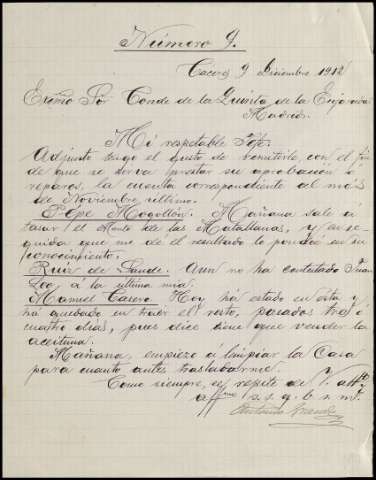 Número 9.
Caceres 9 Diciembre 1912
Excmo Sor Conde de la Quinta de la Enjarada
Madrid.
Mi respetable Jefe:
Adjunto tengo el gusto de remitirle, con el fin
de que se sirva prestar su aprobación ó
reparos, la cuenta correspondiente al més
de Noviembre ultimo.
Pépe Mogollón. Mañana sale á
tasar el Monte de las Matallanas, y en se-
guida que me dé el resultado lo pondré en su
conocimiento.
Ruiz de Lande. Aun no ha contestado Juan
á la ultima mia.
Manuel Casero. Hoy há estado en ésta y
há quedado en traer el resto, pasados tres o
cuatro dias, pues dice tiene que vender la
aceituna.
Mañana, empiezo á limpiar la Casa
para cuanto antes trasladarme.
Como siempre, se repite de V. atto
affmo s. s. q. b. s. m.